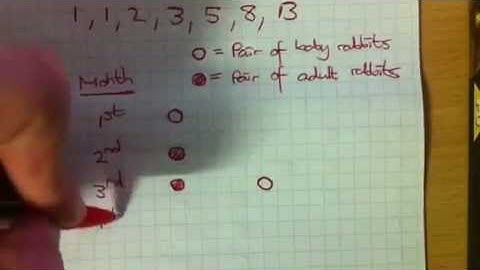 1, 1, 2, 3, 5, 8, 13
= Pair of baby rabbits
Month = Pair of adult rabbits
1st
2nd
3rd